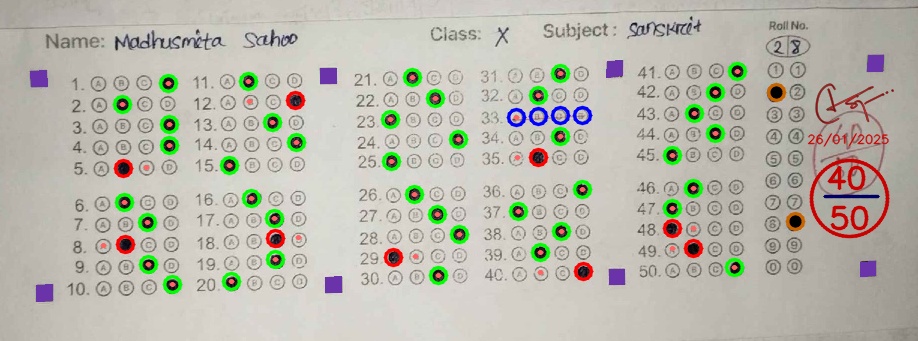 Name: Madhusmita Sahoo Class: X Subject: Sanskrit Roll No.
28
1. A B C
2. A C D
3. A B C
4. A B C
5. A D
6. A C D
7. A B D
8. C D
9. A B D
10. A B C
11. A C D
12. A C
13. A B D
14. A B C
15. B C D
16. A C D
17. A B D
18. A B
19. A B D
20. B C D
21. A C D
22. A B D
23. B C D
24. A B C
25. B C D
26. A C D
27. A B D
28. A B C
29. C D
30. A B D
31. D
32. A C D
33.
34. A B D
35. C D
36. A B C
37. B C D
38. A B D
39. A C D
40. A C
41. A B C
42. A B D
43. A C D
44. A B D
45. B C D
46. A C D
47. B C D
48. C D
49. C D
50. A B C
1 1
2
3 3
4 4
5 5
6 6
7 7
8
9 9
0 0
26/01/2025
40
50